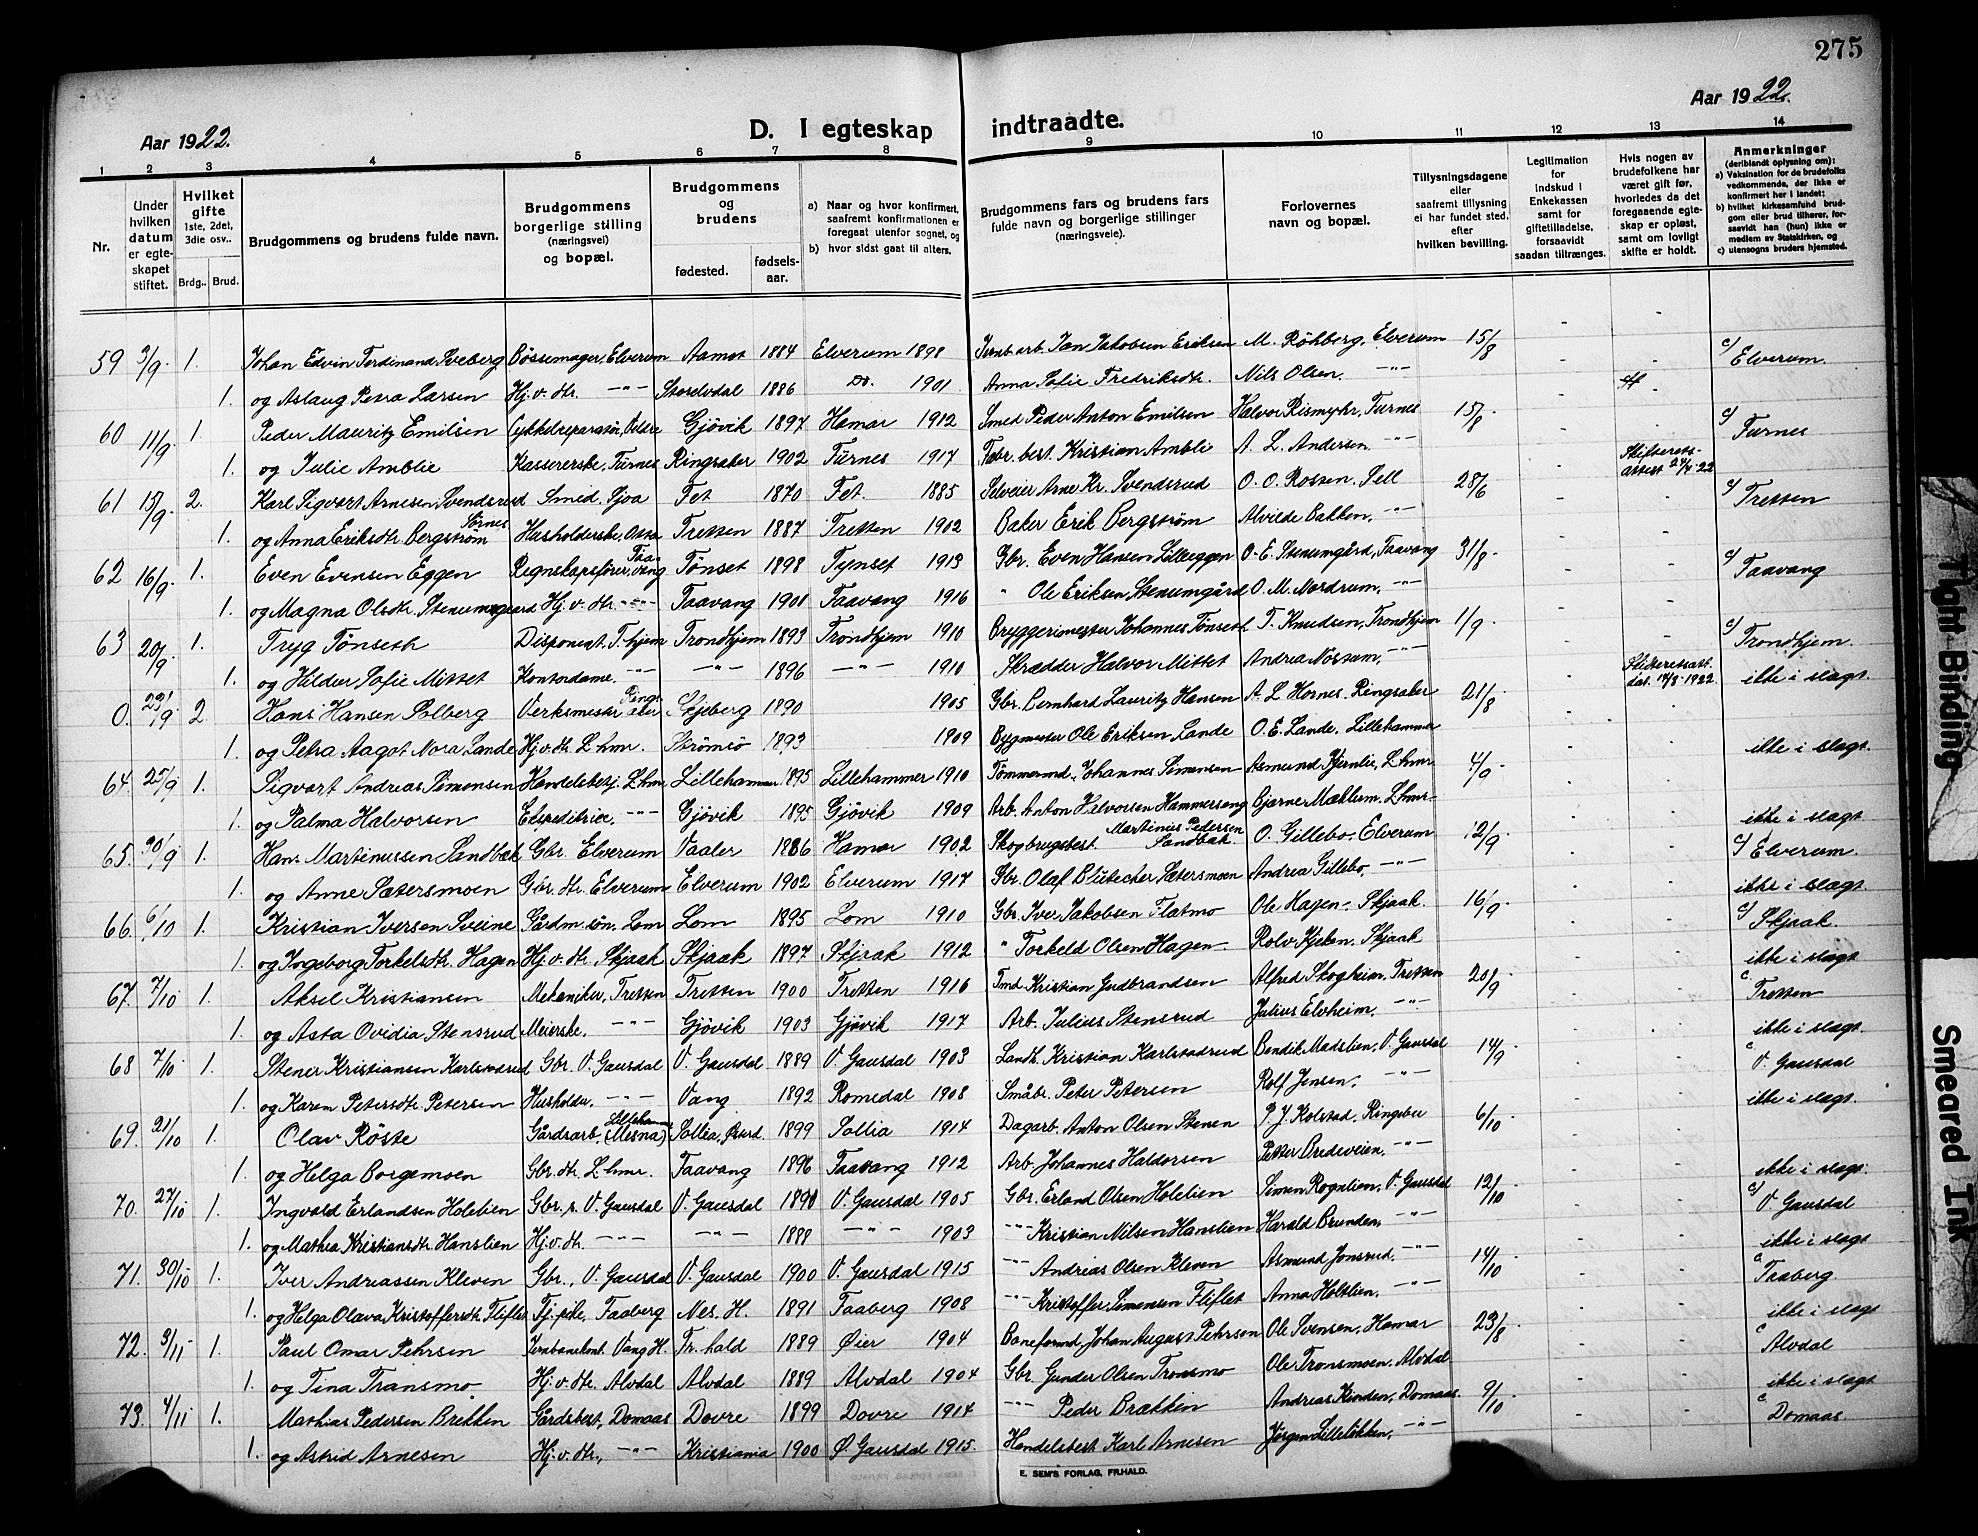 275
Aar 1922. D. I egteskap indtraadte. Aar 1922.
1 2 3 4 5 6 7 8 9 10 11 12 13 14
Nr. | Under hvilken datum er egteskapet stiftet. | Hvilket gifte 1ste, 2det, 3die osv.. Brdg.. Brud. | Brudgommens og brudens fulde navn. | Brudgommens borgerlige stilling (næringsvei) og bopæl. | Brudgommens og brudens fødested. fødselsaar. | a) Naar og hvor konfirmert, saafremt konfirmationen er foregaat utenfor sognet, og b) hvor sidst gaat til alters. | Brudgommens fars og brudens fars fulde navn og borgerlige stillinger (næringsveie). | Forlovernes navn og bopæl. | Tillysningsdagene eller saafremt tillysning ei har fundet sted, efter hvilken bevilling. | Legitimation for indskud i Enkekassen samt for giftetilladelse, forsaavidt saadan tiltrænges. | Hvis nogen av brudefolkene har været gift før, hvorledes da det foregaaende egteskap er opløst, samt om lovligt skifte er holdt. | Anmerkninger (deriblandt oplysning om): a) Vaksination for de brudefolks vedkommende, der ikke er konfirmert her i landet; b) hvilket kirkesamfund brudgom eller brud tilhører, forsaavidt han (hun) ikke er medlem av Statskirken, og c) utensogns bruders hjemsted.
59 3/9. 1. Johan Edvin Ferdinand Sveberg Bøssemager, Elverum Aamot 1884 Elverum 1898 Jernb.arb. Jan Jakobsen Eriksen M. Røhberg, Elverum 15/8 c/ Elverum.
1. og Aslaug Petra Larsen Hj.v. dtr. -"- Storelvdal 1886 Do. 1901. Anna Sofie Fredriksdtr. Nils Olsen. -"-
60 11/9 1. Peder Mauritz Emilsen Cykkelreparatør, Veldre Gjövik 1897 Hamar 1912 Smed Peder Anton Emilsen Halvor Rismyhr, Furnes 15/8 c/ Furnes
1. og Julie Amblie Kassererske, Furnes Ringsaker 1902 Furnes 1917 Fabr. best. Kristian Ambli A. L. Andersen. -"- Skifteretsattest 24/4-22
61 15/9. 2. Karl Sigvart Arnesen Svendsrud Smed. Sjoa Fet 1870 Fet. 1885 Selveier Arne Kr. Svendsrud O. O. Rosten. Sell 28/6 c/ Tretten
1. og Anna Eriksdtr Bergström Sørnes Husholderske, Otta Tretten 1887 Tretten 1902 Baker Erik Bergström Alvilde Bakken, -"-
62 16/9. 1. Even Evensen Eggen Regnskapsfører, Faavang Tönset 1898 Tynset 1913 Gbr. Even Hansen Lilleeggen O. E. Stenumgård, Faavang 31/8 c/ Faavang
1. og Magna Olsdtr Stenumgaard Hj. v. dtr -"- Faavang 1901 Faavang 1916 " Ole Eriksen Stenumgård O. M. Nordrum, -"-
63 20/9. 1. Tryg Tönseth Disponent, T.hjem Trondhjem 1893 Trondhjem 1910 Bryggerimester Johannes Tönseth T. Knudsen, Trondhjem 1/9 c/ Trondhjem.
1. og Hildur Sofie Mittet Kontordame. -"- -"- 1896 -"- 1910 Skrædder Halvor Mittet Andrea Nossum, -"- Skifteretsatt. dat. 14/8-1922 ikke i slagt
0. 23/9 2 Hans Hansen Solberg Verksmestr Ringsaker Skjeberg 1890 1905 Gbr. Bernhard Lauritz Hansen A. L. Hornes, Ringsaker 21/8
1. og Petra Aagot Nora Lande Hj.v. dtr. L.hmr. Strömsö 1893 1909 Bygmester Ole Eriksen Lande O. E. Lande. Lillehammer ikke i slagt.
64. 25/9 1. Sigvart Andreas Simensen Handelsbetj. L.hmr Lillehammer 1895 Lillehammer 1910 Tömmermd. Johannes Simensen Asmund Kjernlie, L.hmr. 4/9
1. og Palma Halvorsen Ekspeditrice, -"- Gjövik 1895 Gjövik 1909 Arb. Anton Halvorsen Hammerseng Bjarne Mæhlum. L.hmr- ikke i slagt
65. 30/9. 1. Hans Martinussen Sandbæk Gbr. Elverum Vaaler 1886 Hamar 1902 Skogbrugsbest. Martinus Pedersen Sandbæk. O. Gillebo. Elverum 12/9 c/ Elverum.
1. og Anne Sætersmoen Gbr. dtr. Elverum Elverum 1902 Elverum 1917 Gbr. Olaf Blütecher Sætersmoen Andrea Gillebo, -"- ikke i slagt.
66. 6/10 1. Kristian Iversen Sveine Gårdm.sön. Lom Lom 1895 Lom 1910 Gbr. Iver Jakobsen Flatmo Ole Hagen. Skjaak. 16/9. c/ Skjaak.
1. og Ingeborg Torkelsdtr. Hagen Hj. v. dtr. Skjaak Skjaak 1897 Skjaak 1912 " Torkeld Olsen Hagen Rolv Kjeken. Skjaak ikke i slagt.
67. 7/10 1. Aksel Kristiansen Mekaniker, Tretten Tretten 1900 Tretten 1916 Tmd. Kristian Gudbrandsen Alfred Skogheim, Tretten 20/9 c Tretten
1. og Asta Ovidia Stensrud Meierske. -"- Gjövik 1903 Gjövik 1917 Arb. Julius Stensrud Julius Elvheim, -"- ikke i slagt.
68 7/10 1. Stener Kristiansen Karlstadrud Gbr. V. Gausdal V. Gausdal 1889 V. Gausdal 1903 Landh. Kristian Karlstadrud Bendik Madslien, V. Gausdal 14/9 c V. Gausdal
1. og Karen Petersdtr. Petersen Husholdn. -"- Vang. 1892 Romedal 1908 Småbr. Peter Petersen Rolf Jensen, -"- ikke i slagt.
69. 21/10 1. Olav Röste Gårdsarb. (Mesna) Lillehammer Sollia, Østerd. 1899 Sollia 1914 Dagarb. Anton Olsen Stenen P. J. Kolstad. Ringebu 6/10
1. og Helga Borgemoen Gbr. dtr. L.hmr. Faavang 1896 Faavang 1912 Arb. Johannes Haldorsen Petter Bredeveien, -"- ikke i slagt.
70. 27/10 1. Ingvald Erlandsen Holelien Gbr. s. V. Gausdal V. Gausdal 1891 V. Gausdal 1905 Gbr. Erland Olsen Holelien Simen Rognlien, V. Gausdal 12/10 c/ V Gausdal
1. og Mathea Kristiansdtr. Hanslien Hj.v. dtr. -"- -"- 1888 -"- 1903 -"- Kristian Nilsen Hanslien Harald Brunden, -"- ikke i slagt
71. 30/10 1. Iver Andreassen Kleven Gbr., V. Gausdal V. Gausdal 1900 V. Gausdal 1915 -"- Andreas Olsen Kleven Asmund Jonsrud, -"- 14/10 c Faaberg.
1. og Helga Olava Kristoffersdtr. Fliflet Tj. pike, Faaberg Nes. H. 1891 Faaberg 1908 -"- Kristoffer Simensen Fliflet Anna Holtlien, -"- ikke i slagt
72. 3/11 1. Paul Omar Pehrsen Jernbanekont. Vang H. Fr. hald 1889 Øier 1904 Baneformd. Johan August Pehrsen Ole Svensen, Hamar 23/8 c Alvdal
1. og Tina Transmo Hj.v. dtr. Alvdal Alvdal 1889 Alvdal 1904 Gbr. Gunder Olsen Tronsmo Ole Tronsmoen, Alvdal ikke i slagt
73. 4/11 1. Mathias Pedersen Brekken Gårdsbest. Domaas Dovre 1899 Dovre 1914 -"- Peder Brækken Andreas Kinden, Domaas. 9/10 c Domaas.
1. og Astrid Arnesen Hj. v. dtr., -"- Kristiania 1900 Ø. Gausdal 1915. Handelsbest. Karl Arnesen Jörgen Lilleløkken, -"-
E. SEM'S FORLAG, FR.HALD.
Tight Binding
Smeared Ink